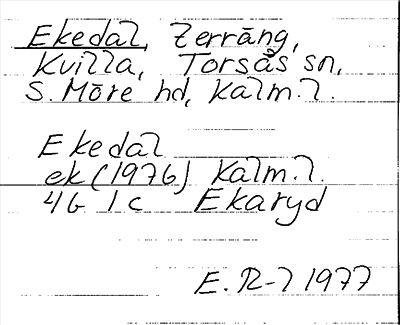 Ekedal, Terräng,
Kvilla, Torsås sn,
S. Möre hd, Kalm. l.
Ekedal
ek (1976) Kalm. l.
4G 1c Ekaryd
E. R-l 1977